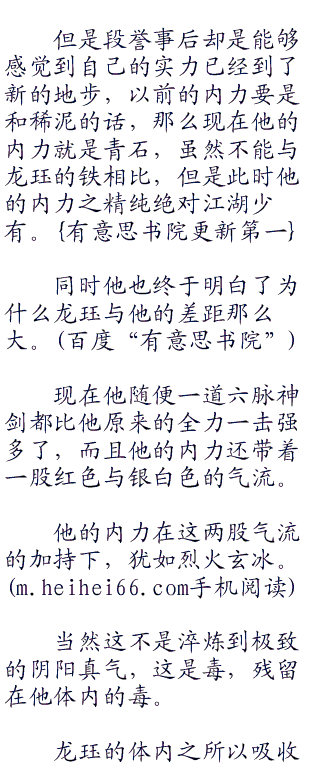 但是段誉事后却是能够
感觉到自己的实力已经到了
新的地步，以前的内力要是
和稀泥的话，那么现在他的
内力就是青石，虽然不能与
龙珏的铁相比，但是此时他
的内力之精纯绝对江湖少
有。{有意思书院更新第一}
同时他也终于明白了为
什么龙珏与他的差距那么
大。(百度“有意思书院”)
现在他随便一道六脉神
剑都比他原来的全力一击强
多了，而且他的内力还带着
一股红色与银白色的气流。
他的内力在这两股气流
的加持下，犹如烈火玄冰。
(m.heihei66.com手机阅读)
当然这不是淬炼到极致
的阴阳真气，这是毒，残留
在他体内的毒。
龙珏的体内之所以吸收